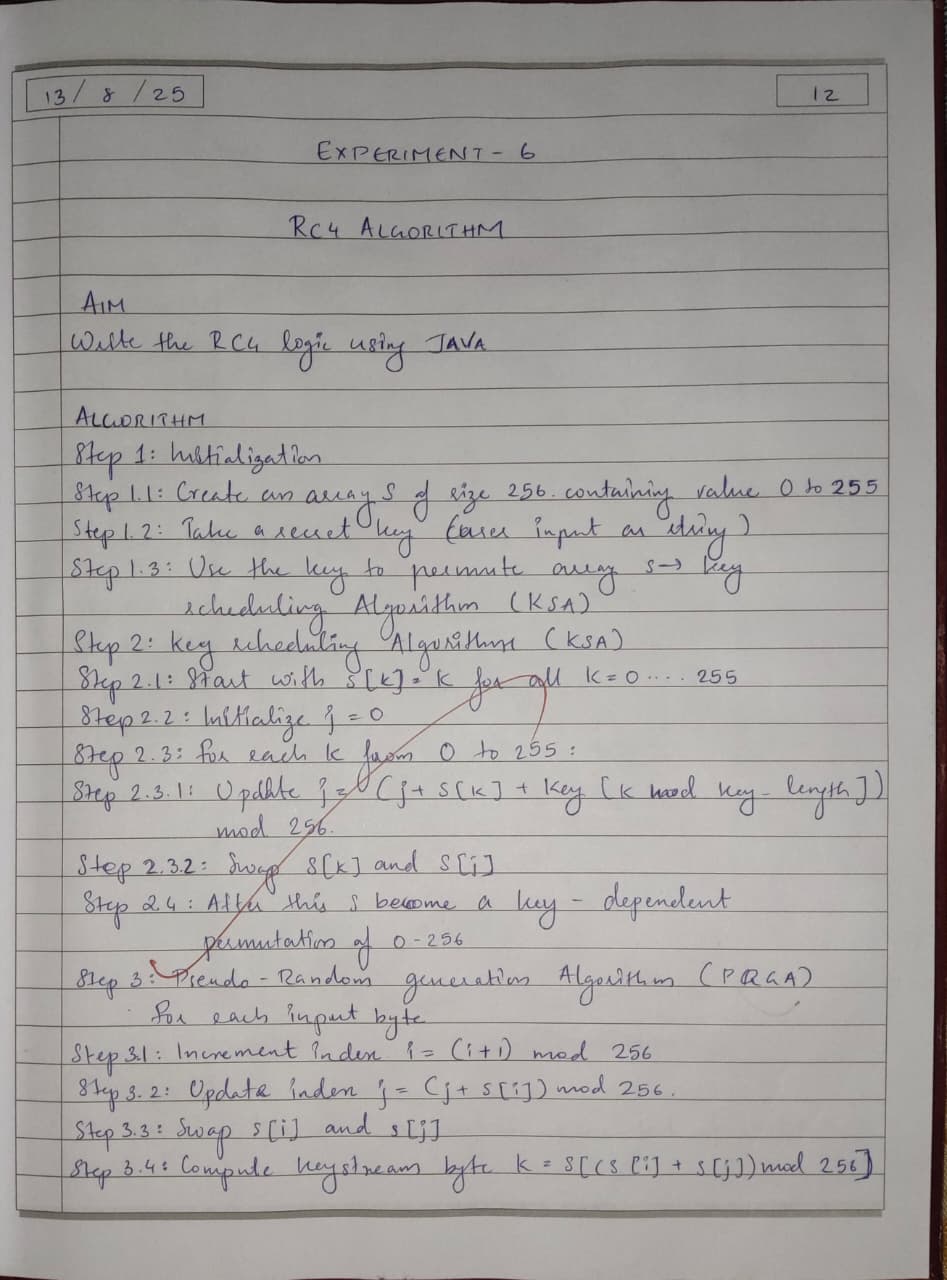 13/8/25
12
EXPERIMENT-6
RC4 ALGORITHM
AIM
Write the RC4 logic using JAVA
ALGORITHM
Step 1: Initialization
Step 1.1: Create an array S of size 256 containing value 0 to 255
Step 1.2: Take a secret key (user input as string)
Step 1.3: Use the key to permute array s→ key
scheduling Algorithm (KSA)
Step 2: Key scheduling Algorithm (KSA)
Step 2.1: Start with S[k]= K for all K=0....255
Step 2.2: Initialize j=0
Step 2.3: for each k from 0 to 255:
Step 2.3.1: Update j= (j+ S[k] + Key [k mod key-length])
mod 256.
Step 2.3.2: Swap S[k] and S[j]
Step 2.4: After this S become a key-dependent
permutation of 0-256
Step 3: Pseudo-Random generation Algorithm (PRGA)
for each input byte
Step 3.1: Increment index i= (i+1) mod 256
Step 3.2: Update index j= (j+ S[i]) mod 256.
Step 3.3: Swap S[i] and S[j]
Step 3.4: Compute keystream byte K = S[(S[i] + S[j]) mod 256]